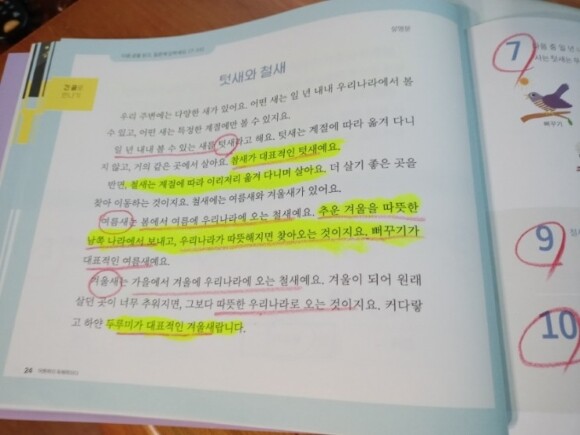 설명문
긴 글을
만나기
텃새와 철새
우리 주변에는 다양한 새가 있어요. 어떤 새는 일 년 내내 우리나라에서 볼
수 있고, 어떤 새는 특정한 계절에만 볼 수 있지요.
일 년 내내 볼 수 있는 새를 텃새라고 해요. 텃새는 계절에 따라 옮겨 다니
지 않고, 거의 같은 곳에서 살아요. 참새가 대표적인 텃새예요.
반면, 철새는 계절에 따라 이리저리 옮겨 다니며 살아요. 더 살기 좋은 곳을
찾아 이동하는 것이지요. 철새에는 여름새와 겨울새가 있어요.
여름새는 봄에서 여름에 우리나라에 오는 철새예요. 추운 겨울을 따뜻한
남쪽 나라에서 보내고, 우리나라가 따뜻해지면 찾아오는 것이지요. 뻐꾸기가
대표적인 여름새예요.
겨울새는 가을에서 겨울에 우리나라에 오는 철새예요. 겨울이 되어 원래
살던 곳이 너무 추워지면, 그보다 따뜻한 우리나라로 오는 것이지요. 커다랗
고 하얀 두루미가 대표적인 겨울새랍니다.
24
7
뻐꾸기
9
10